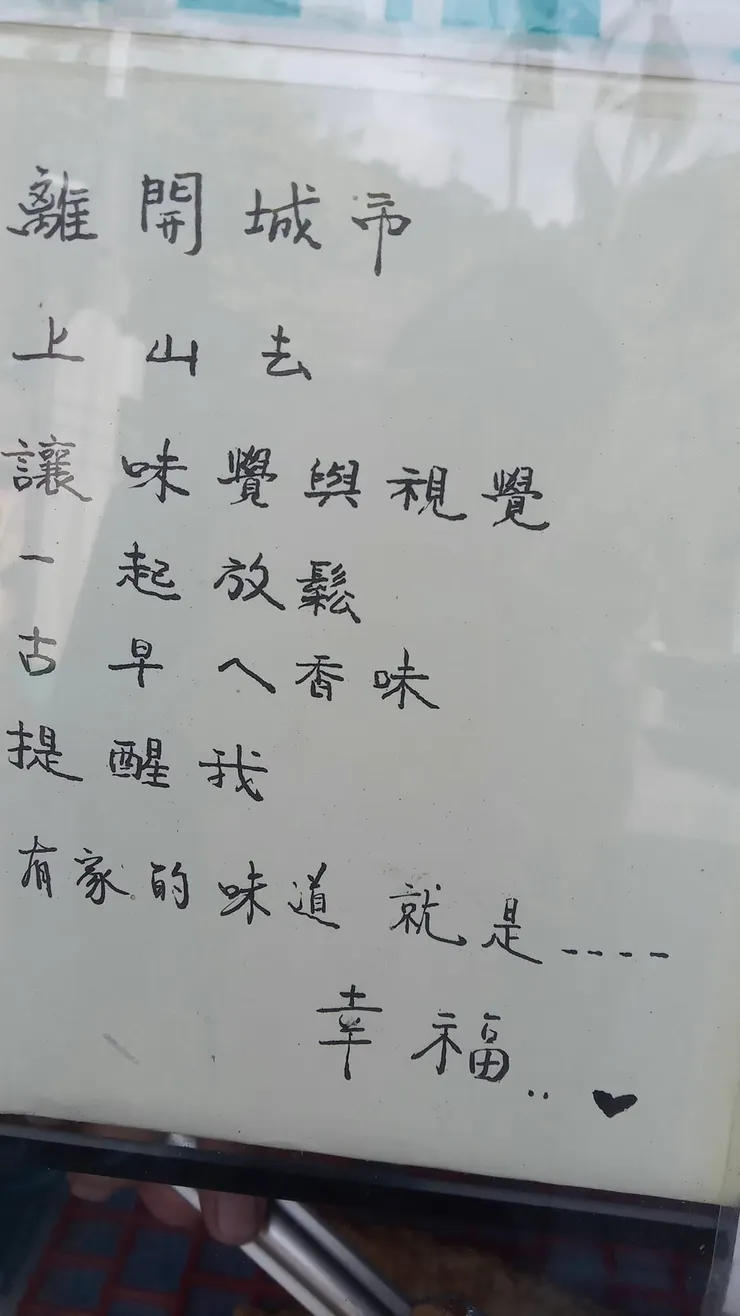 離開城市
上山去
讓味覺與視覺
一起放鬆
古早ㄟ香味
提醒我
有家的味道 就是----
幸福..♥